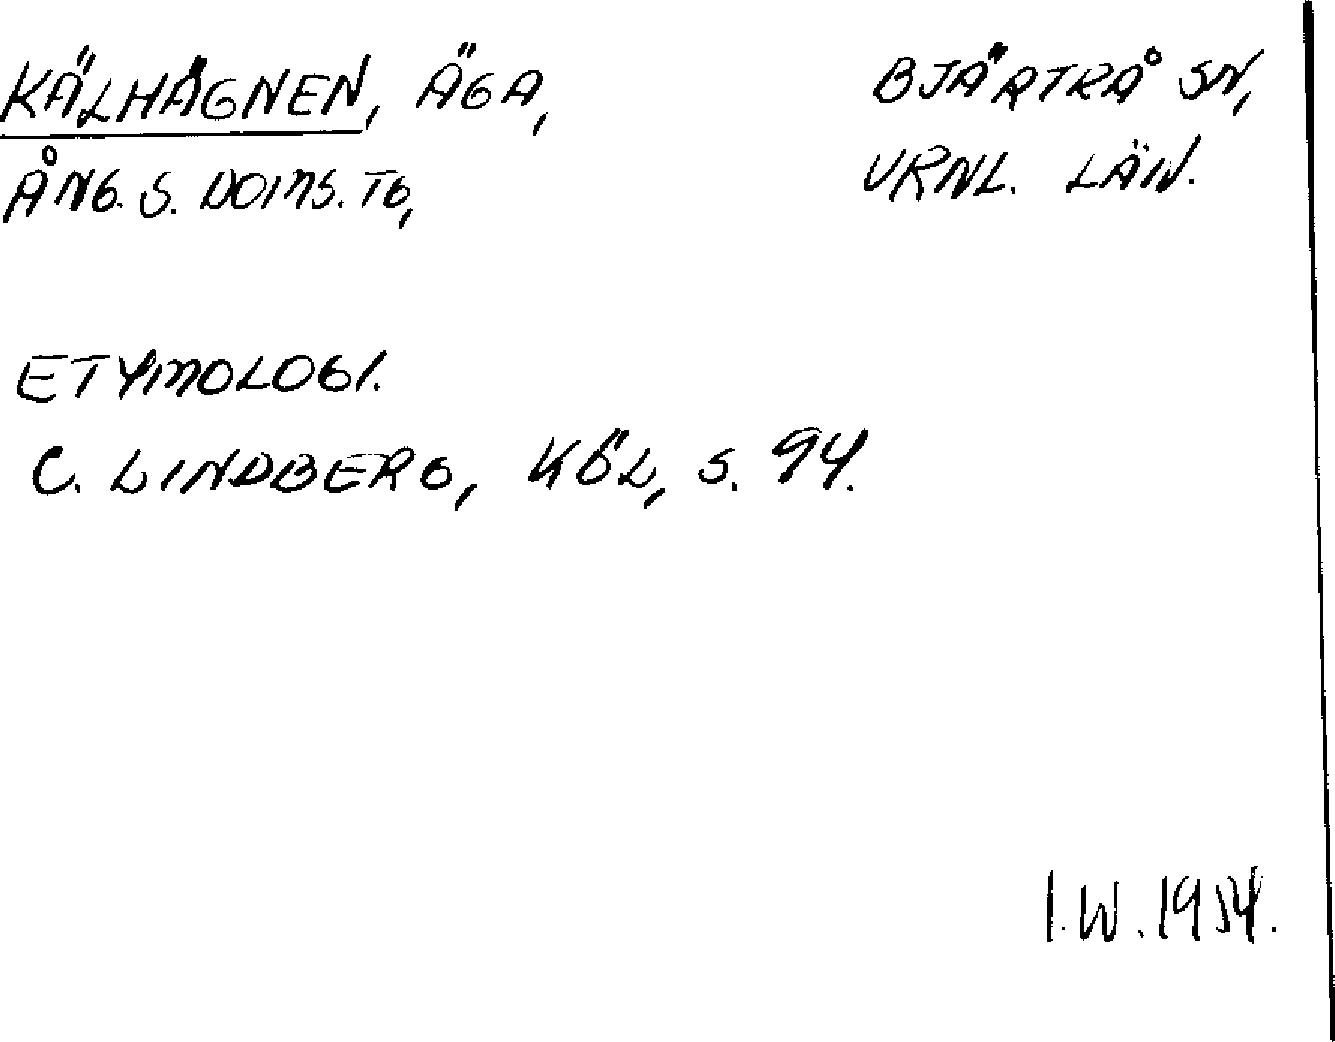 KÄLHÄGNEN, ÄGA,
BJÄRTRÅ SN,
ÅNG. S. DOMS. TG,
VRNL. LÄN.
ETYMOLOGI.
C. LINDBERG, KÖL, S. 94.
I.W. 1954.